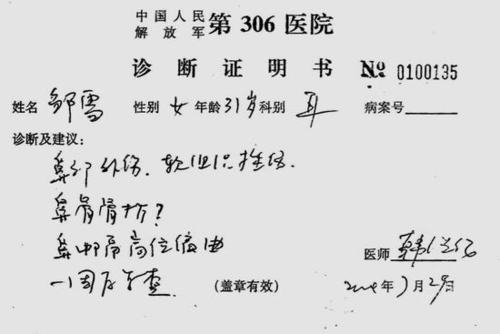 中国人民
解放军 第306医院
诊断证明书 № 0100135
姓名 邹雪 性别 女 年龄 31岁 科别 耳 病案号
诊断及建议:
鼻部外伤、软组织挫伤.
鼻骨骨折?
鼻中隔高位偏曲
一周后复查. (盖章有效)
医师 韩
年 月 2 日